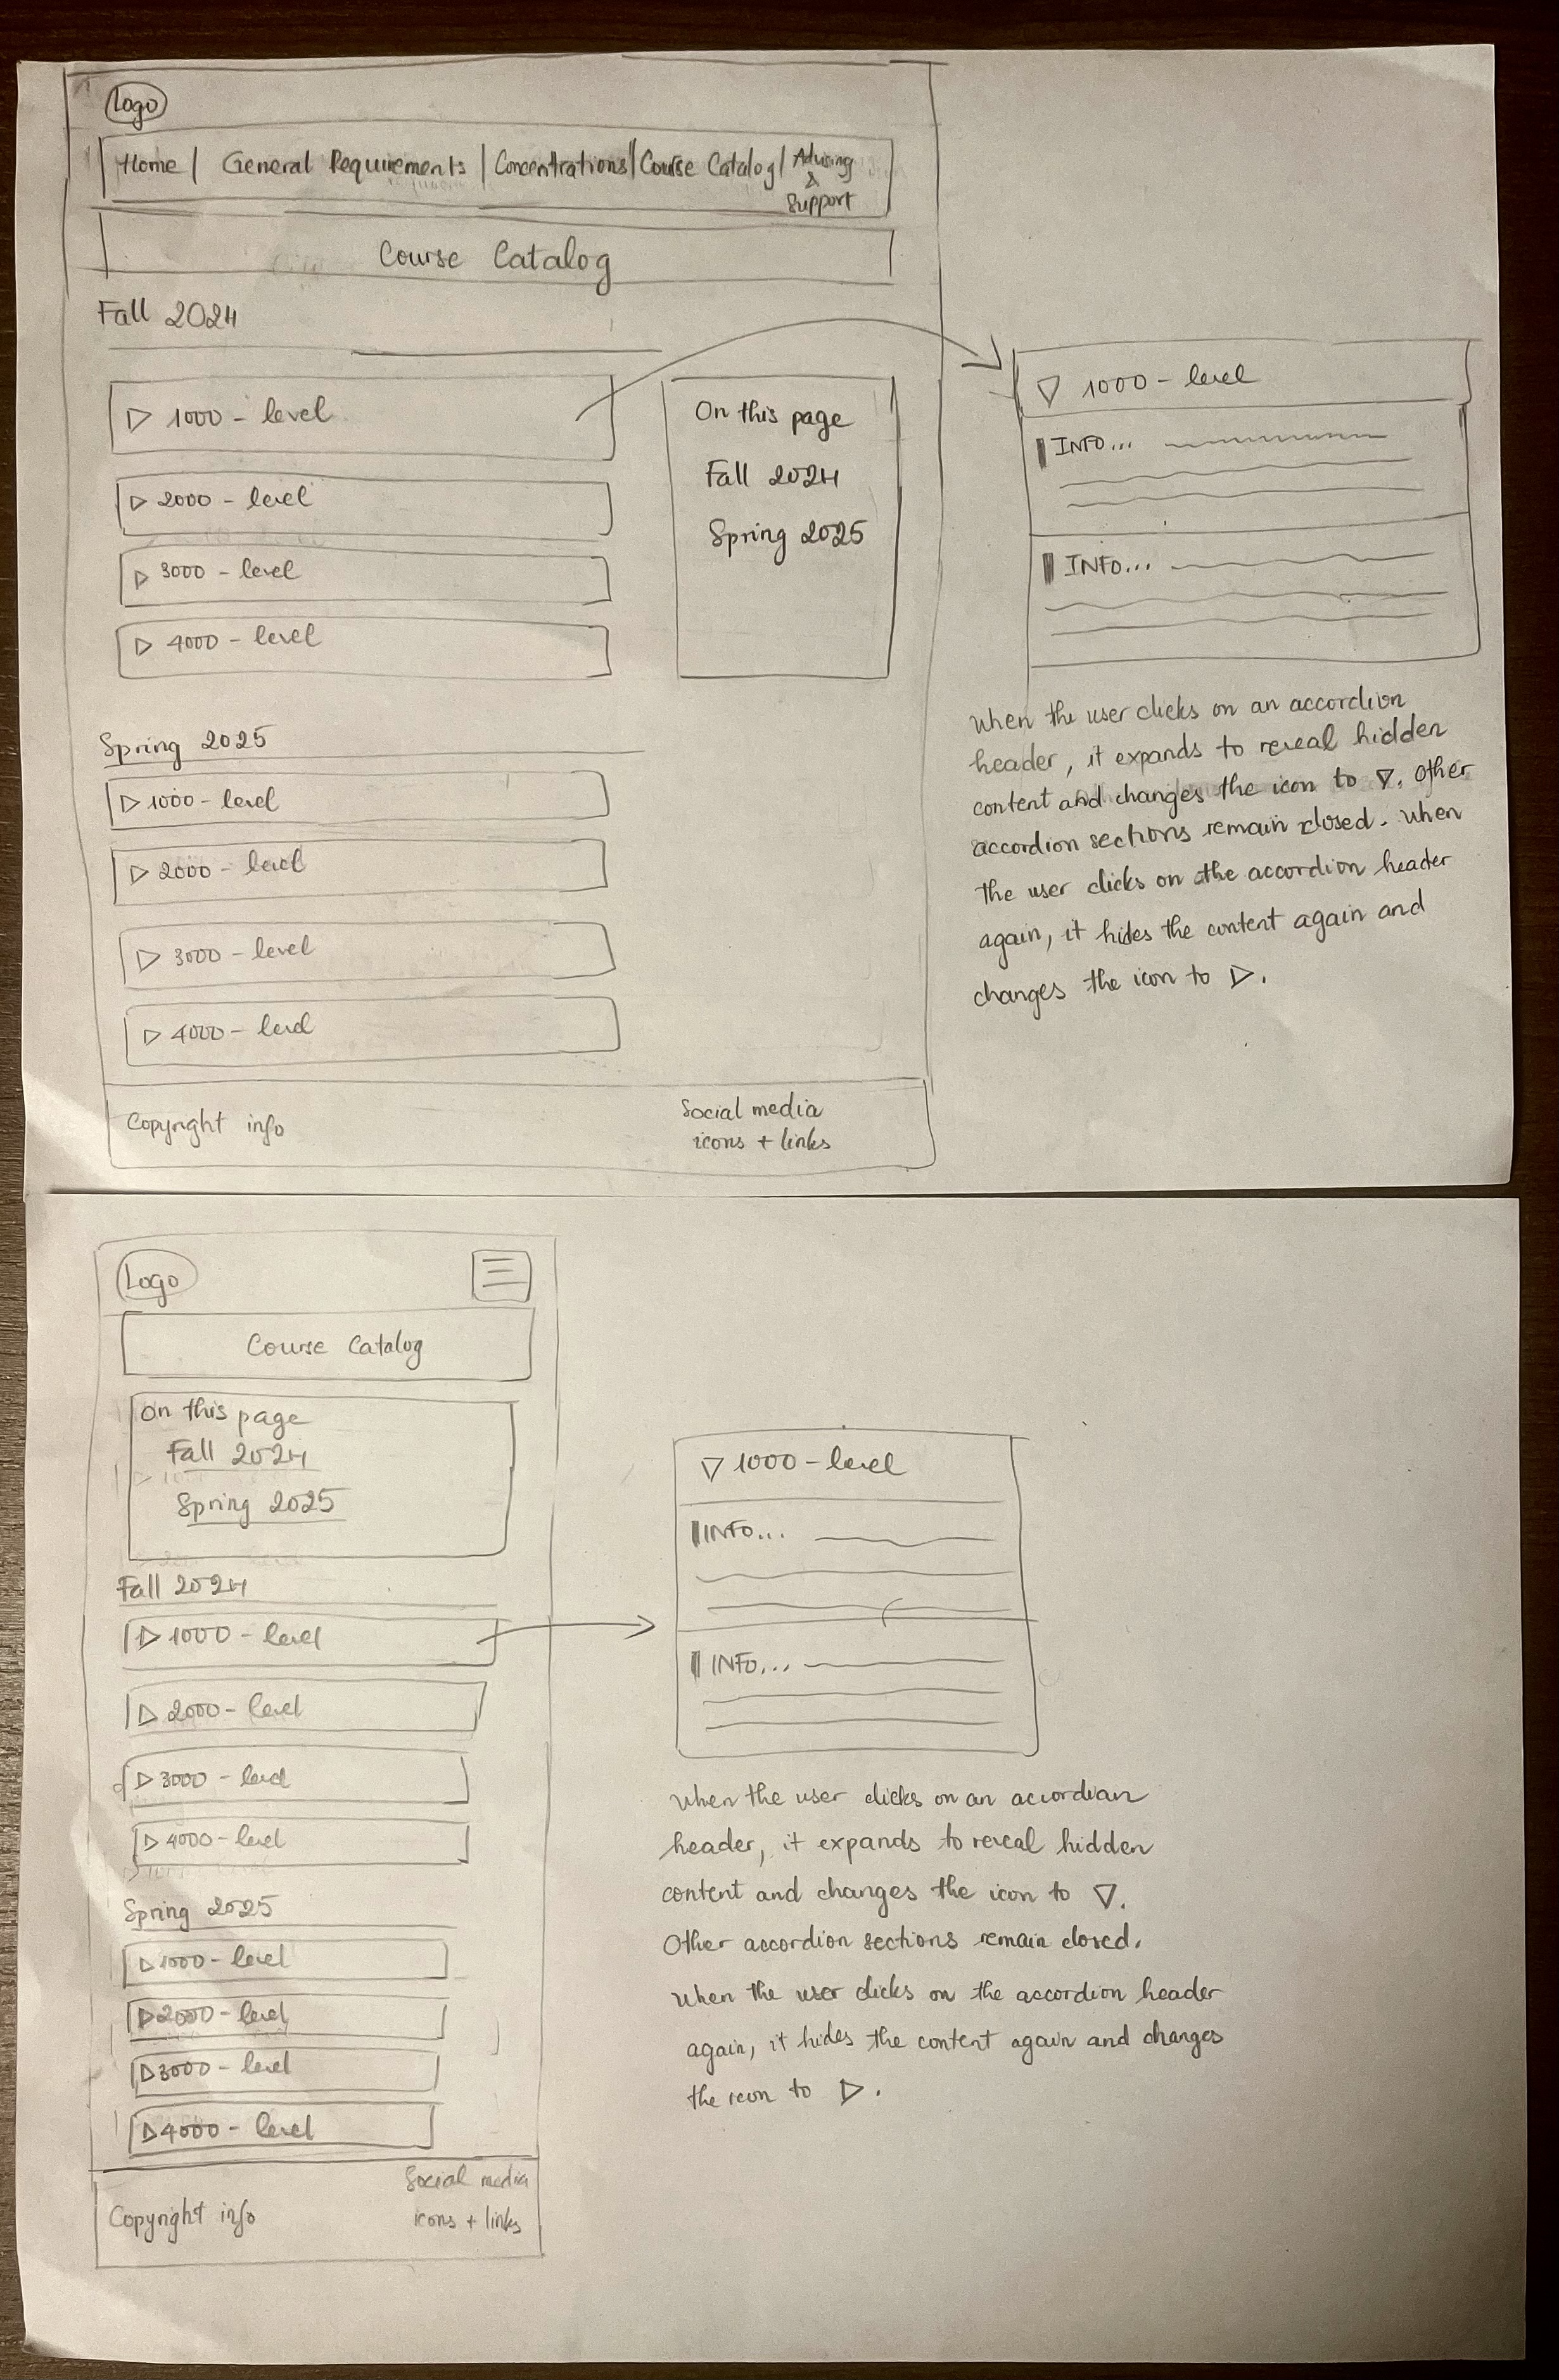 Logo
Home | General Requirements | Concentrations | Course Catalog | Advising & Support
Course Catalog
Fall 2024
▷ 1000 - level
▷ 2000 - level
▷ 3000 - level
▷ 4000 - level
On this page
Fall 2024
Spring 2025
Spring 2025
▷ 1000 - level
▷ 2000 - level
▷ 3000 - level
▷ 4000 - level
Copyright info
Social media
icons + links
▽ 1000 - level
INFO...
INFO...
When the user clicks on an accordion
header, it expands to reveal hidden
content and changes the icon to ▽. Other
accordion sections remain closed. When
the user clicks on the accordion header
again, it hides the content again and
changes the icon to ▷.
Logo
Course Catalog
On this page
Fall 2024
Spring 2025
Fall 2024
▷ 1000 - level
▷ 2000 - level
▷ 3000 - level
▷ 4000 - level
Spring 2025
▷ 1000 - level
▷ 2000 - level
▷ 3000 - level
▷ 4000 - level
Copyright info
Social media
icons + links
▽ 1000 - level
INFO...
INFO...
When the user clicks on an accordian
header, it expands to reveal hidden
content and changes the icon to ▽.
Other accordion sections remain closed.
When the user clicks on the accordion header
again, it hides the content again and changes
the icon to ▷.